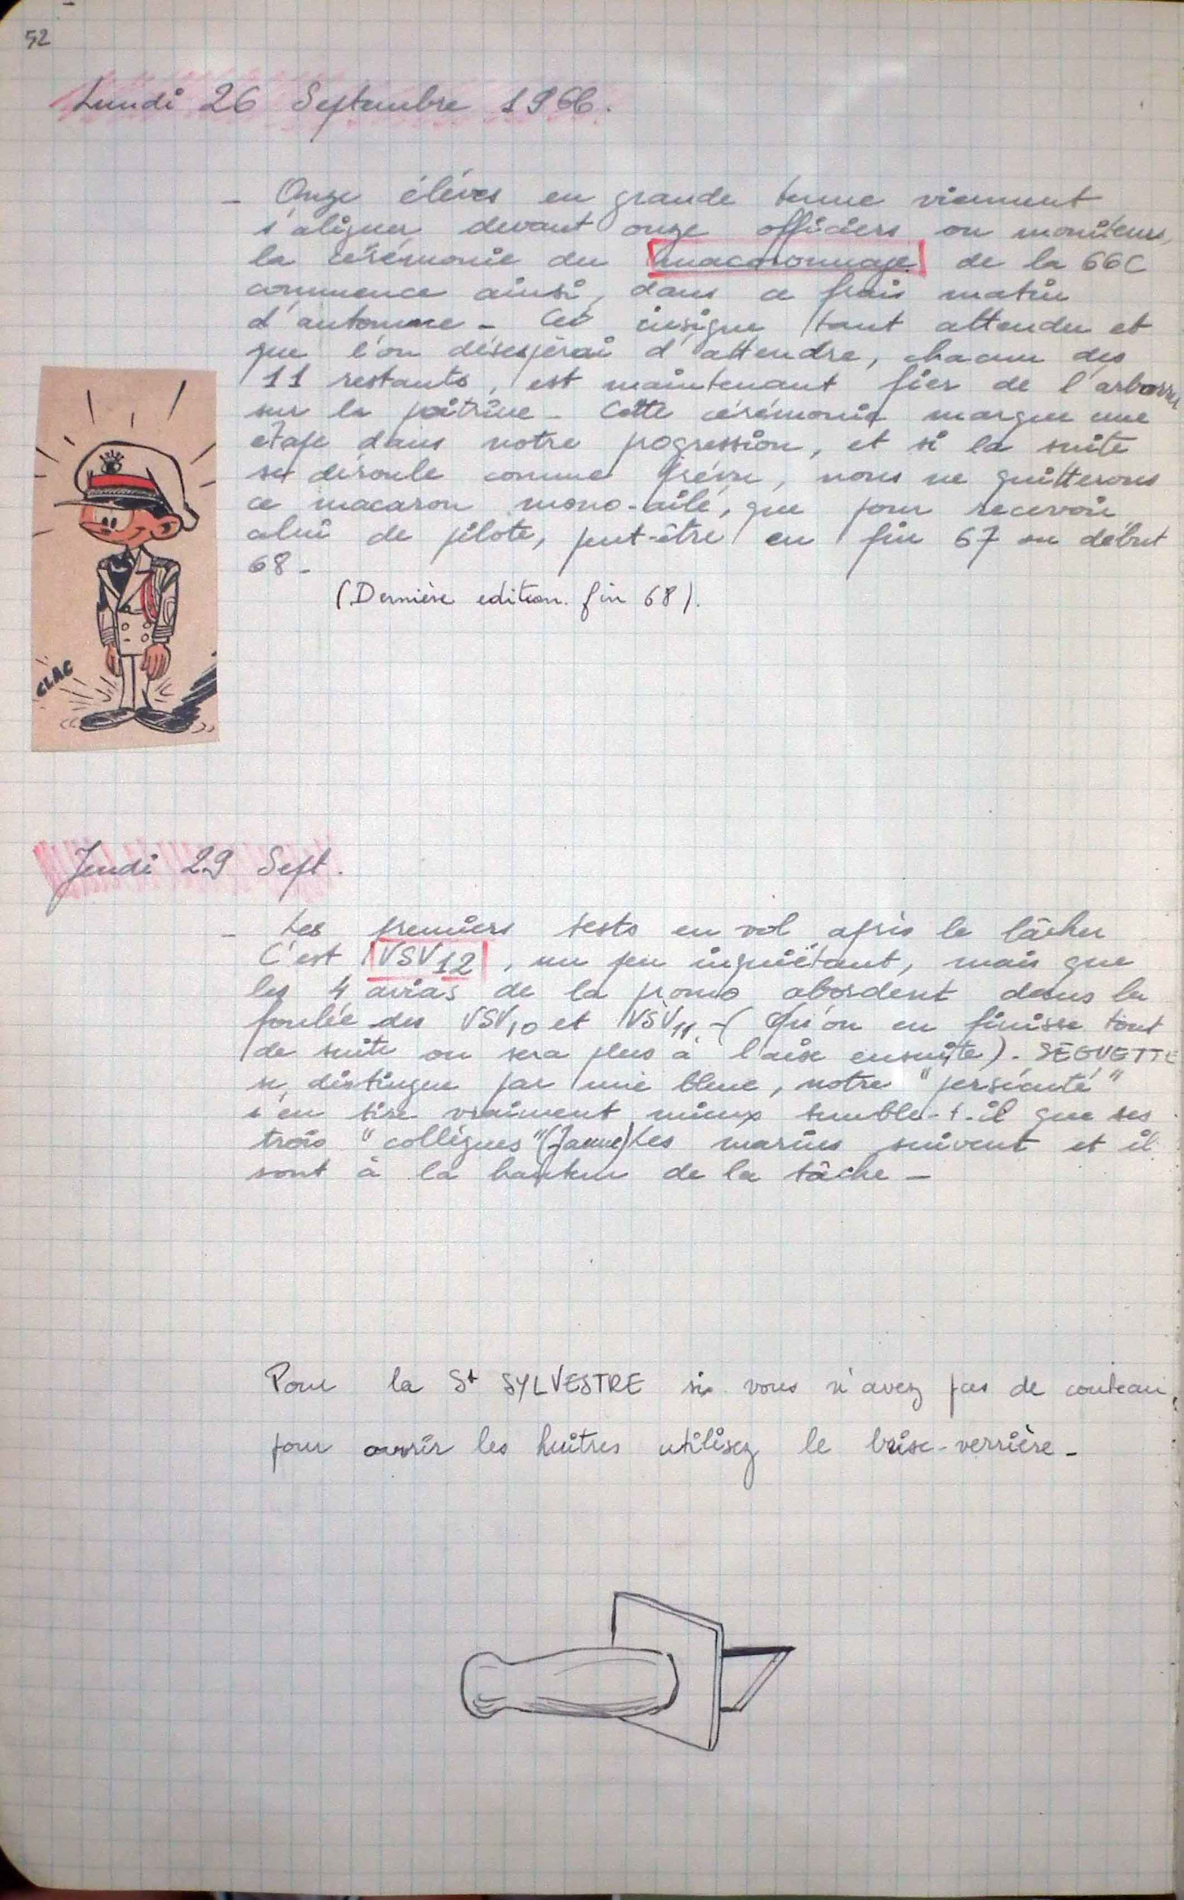 52
Lundi 26 Septembre 1966.
- Onze élèves en grande tenue viennent
s'aligner devant onze officiers ou moniteurs,
la cérémonie du macaronnage de la 66C
commence ainsi, dans ce frais matin
d'automne - Cet insigne tant attendu et
que l'on désespérai d'attendre, chacun des
11 restants, est maintenant fier de l'arborer
sur la poitrine - Cette cérémonie marque une
étape dans notre progression, et si la suite
se déroule comme prévu, nous ne quitterons
ce macaron mono-ailé, que pour recevoir
celui de pilote, peut-être en fin 67 ou début
68 -
(Dernière edition. fin 68).
CLAC
Jeudi 29 Sept.
- Les premiers tests en vol après le lâcher
C'est VSV12, un peu inquiétant, mais que
les 4 avias de la promo abordent dans la
foulée des VSV10 et VSV11 - (Qu'on en finisse tout
de suite on sera plus à l'aise ensuite). SEGUETTE
se distingue par une bleue, notre "persécuté"
s'en tire vraiment mieux semble-t-il que ses
trois "collègues" (Jaune) Les marins suivent et il
sont à la hauteur de la tâche -
Pour la St SYLVESTRE si vous n'avez pas de couteau,
pour ouvrir les huîtres utilisez le brise-verrière -